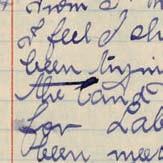 from
I feel I sh
been tryin
the land
for Lab
been mee